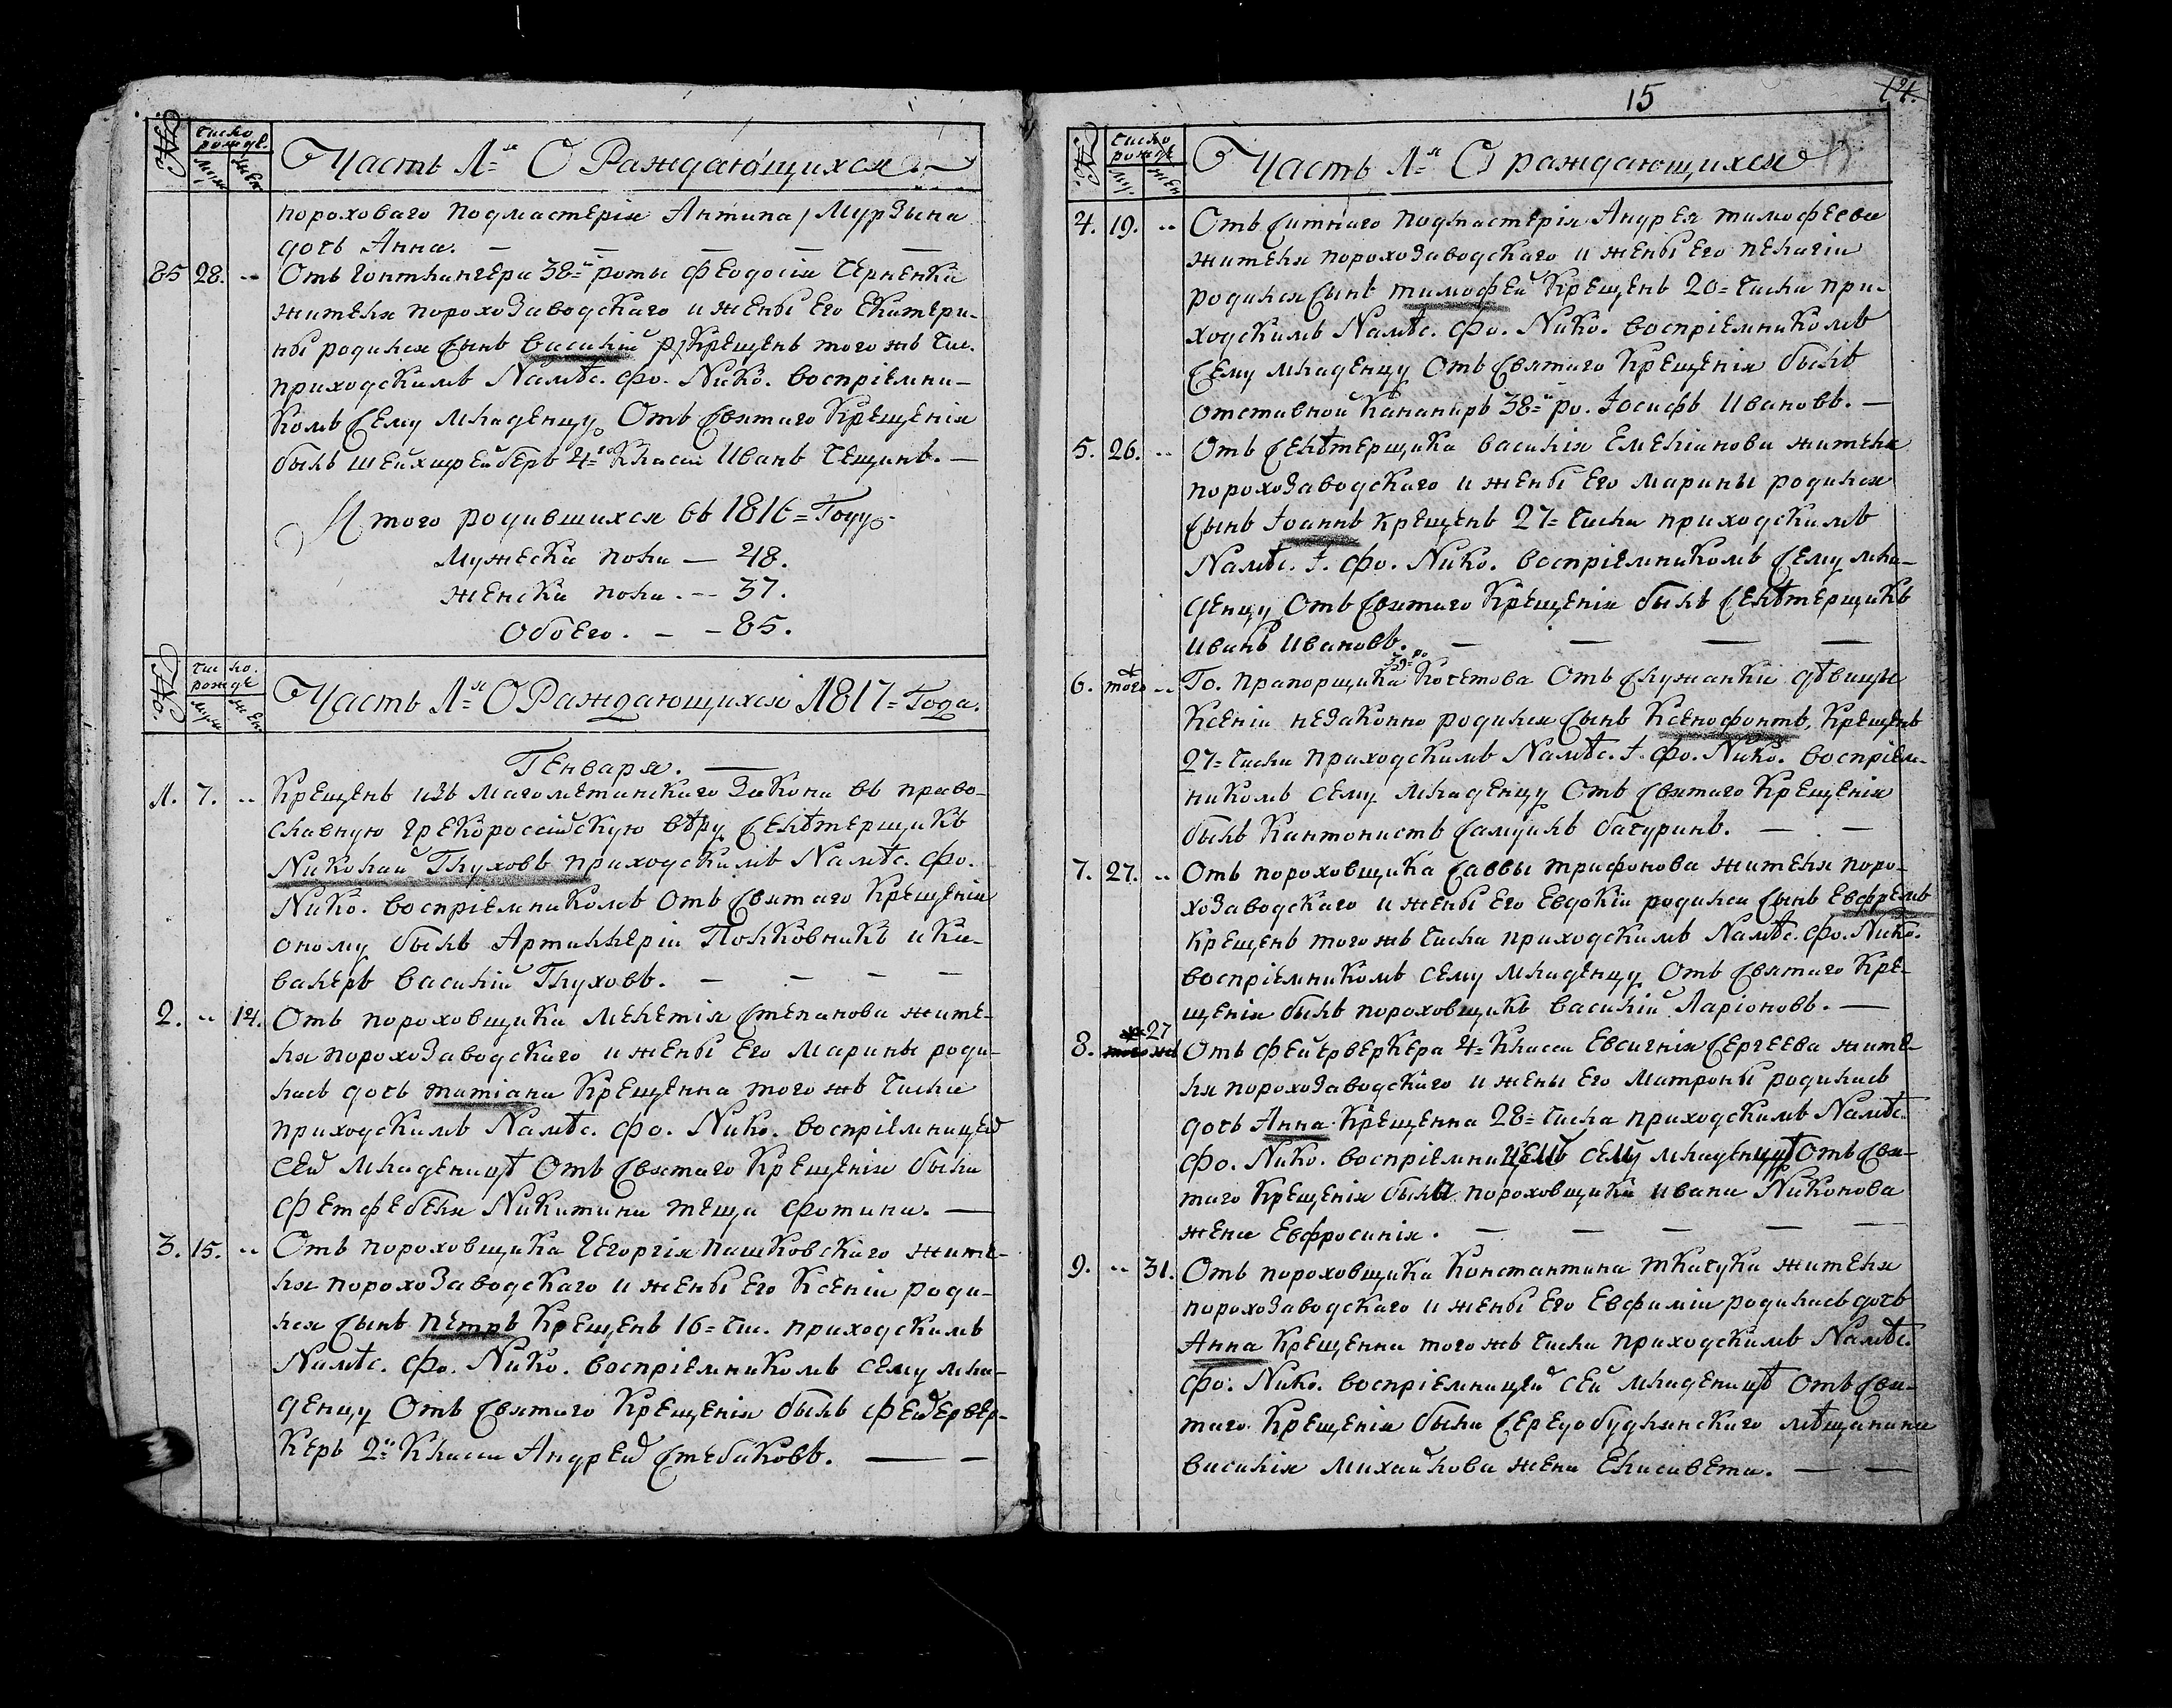 №
число рожде.
муж
жен
Часть 1=я О Раждающихся.
пороховаго подмастерія Антипа Мурзына
дочь Анна.
85 28. „ Отъ гонтлангера 38=й роты Феодосія Черненка
жителя порохозаводскаго и жены его Екатери-
ны родился сынъ Василій Крещенъ того жъ чис.
приходскимъ Намѣс. Фо. Нико. воспріемни-
комъ сему младенцу Отъ святаго Крещенія
былъ 4=го Класа Иванъ Тещинъ.
Итого родившихся въ 1816= Году
Мужеска пола — 48.
женска пола. — 37.
Обоего. — 85.
№
число. рожде
муж
жен.
Часть 1=я О Раждающихся 1817= Года.
Генваря.
1. 7. „ Крещенъ изъ Магометанскаго закона въ право-
славную грекороссійскую вѣру селѣтерщикъ
Николай Глуховъ приходскимъ Намѣс. Фо.
Нико. воспріемникомъ Отъ святаго Крещенія
оному былъ Артиллеріи Полковникъ и Ка-
валеръ Василій Глуховъ.
2. „ 12. Отъ пороховщика Мелетія Степанова жите-
ля порохозаводскаго и жены Его Марины роди-
лась дочь татіана Крещенна того жъ числа
приходскимъ Намѣс. Фо. Нико. воспріемницей
сей младеницѣ Отъ святаго Крещенія была
Фетфебеля Никитина теща Фотина.
3. 15. „ Отъ пороховщика Георгія Пашковскаго жите-
ля порохозаводскаго и жены Его Ксеніи роди-
лся сынъ Петръ Крещенъ 16= чи. приходскимъ
Намѣс. Фо. Нико. воспріемникомъ сему мла-
денцу Отъ святаго Крещенія былъ Фейервер-
керъ 2=й Класа Андрей Стебаковъ.
15
14.
№
число рожде
му.
жен
Часть 1=я О раждающихся
4. 19. „ Отъ ситнаго подмастерія Андрея тимофеева
жителя порохозаводскаго и жены его Пелагіи
родился сынъ тимофей Крещенъ 20= числа при-
ходскимъ Намѣс. Фо. Нико. воспріемникомъ
сему младенцу Отъ святаго Крещенія былъ
отставной Кананиръ 38=й ро. Іосифъ Ивановъ.
5. 26. „ Отъ селѣтерщика Василія Емеліанова жителя
порохозаводскаго и жены Его Марины родился
сынъ Іоаннъ крещенъ 27= числа приходскимъ
Намѣс. І. Фо. Нико. воспріемникомъ сему мла-
денцу Отъ святаго Крещенія былъ селѣтерщикъ
Иванъ Ивановъ.
6. того „ Го. прапорщика 39=ро Кочетова Отъ служанки дѣвицы
Ксеніи незаконно родился сынъ Ксенофонтъ, Крещенъ
27= числа приходскимъ Намѣс. І. Фо. Нико. воспріем-
никомъ сему младенцу Отъ святаго Крещенія
былъ Кантонистъ Самуилъ батуринъ.
7. 27. „ Отъ пороховщика Саввы трифонова жителя поро-
хозаводскаго и жены Его Евдокіи родился сынъ Евфремъ
Крещенъ того жъ числа приходскимъ Намѣс. Фо. Нико.
воспріемникомъ сему младенцу Отъ святаго Кре-
щенія былъ пороховщикъ Василій Ларіоновъ.
8. 27 Отъ Фейерверкера 4= Класа Евсигнія Сергеева жите-
ля порохозаводскаго и жены Его Матроны родилась
дочь Анна Крещенна 28= числа приходскимъ Намѣс.
Фо. Нико. воспріемницей сей младеницѣ Отъ свя-
таго Крещенія была пороховщика Ивана Никонова
жена Евфросинія.
9. „ 31. Отъ пороховщика Константина ткачука жителя
порохозаводскаго и жены Его Евфиміи родилась дочь
Анна Крещенна того жъ числа приходскимъ Намѣс.
Фо. Нико. воспріемницей сей младеницѣ Отъ свя-
таго Крещенія была Середобудлинскаго мѣщанина
Василія Михайлова жена Елисавета.